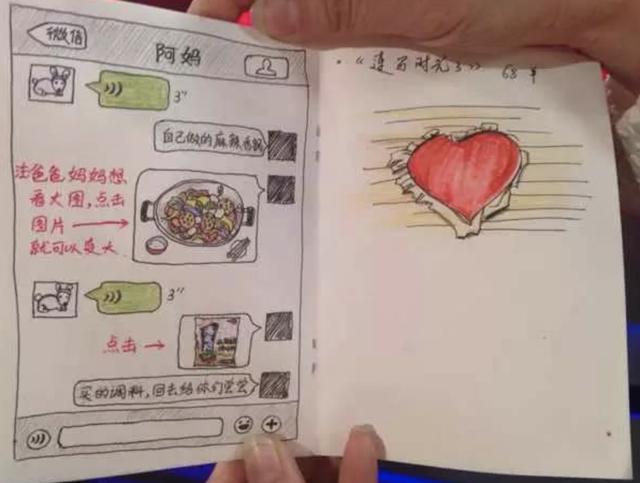 微信
阿妈
3"
自己做的麻辣香锅
注爸爸妈妈想
看大图,点击
图片
就可以变大
3"
点击
买的调料,回去给你们尝尝
68